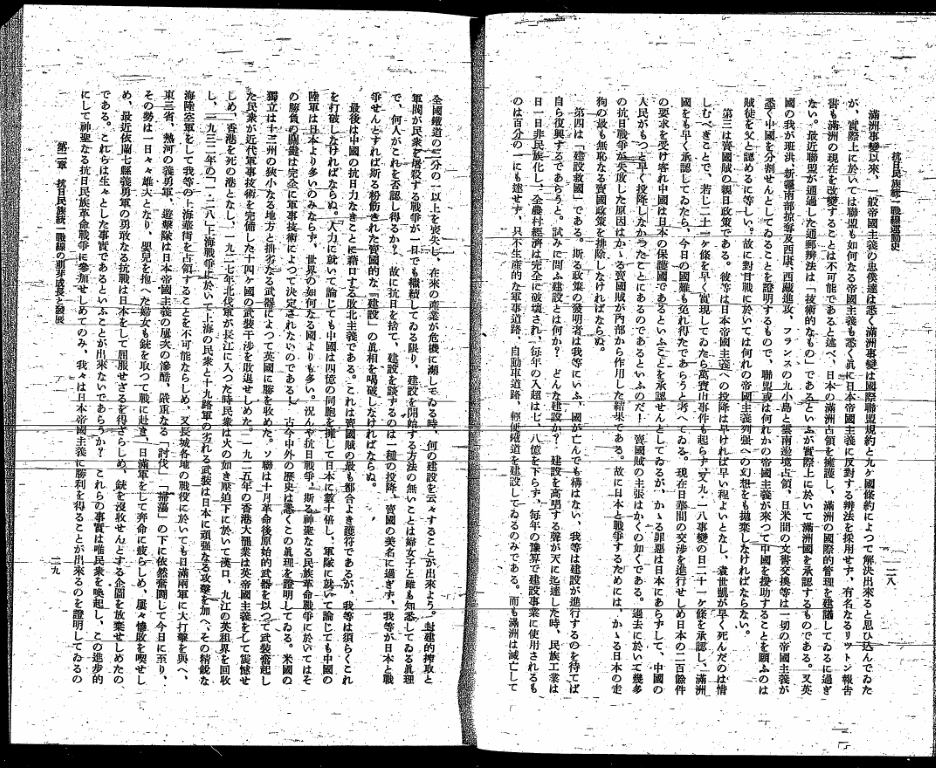 抗日民族統一戰線運動史
二八
滿洲事變以來、一般帝國主義の忠僕達は悉く滿洲事變は國際聯盟規約と九ケ國條約によつて解決出來ると思ひ込んでゐた
が、實際上に於いては聯盟も如何なる帝國主義も悉く眞に日本帝國主義に反對する辦法を採用せず、有名なるリットン報告
書も滿洲の現在を改變することは不可能であると述べ、日本の滿洲占領を擁護し、滿洲の國際的管理を建議してゐるに過ぎ
ない。最近聯盟が通過した通郵辦法は「技術的なもの」であるといふが實際上に於いて滿洲國を承認するものである。又英
國の我が班洪、新疆南部掠奪及西康、西藏進攻、フランスの九小島と雲南邊境占領、日英間の文書交換等は一切の帝國主義が
悉く中國を分割せんとしてゐることを證明するもので、聯盟或は何れかの帝國主義が來つて中國を援助することを願ふのは
賊徒を父と認めるに等しい。故に對日戰に於いては何れの帝國主義列强への幻想をも拋棄しなければならない。
第三は賣國賊の親日政策である。彼等は日本帝國主義への投降は早ければ早い程よいとなし、袁世凱が早く死んだのは惜
しむべきことで、若し二十一ケ條を早く實現してゐたら萬寶山事件も起らず、又九・一八事變の日二十一ケ條を承認し、滿洲
國をも早く承認してゐたら、今日の國難も免れ得たであらうと考へてゐる。現在日那間の交渉を進行せしめ日本の二百餘件
の要求を受け容れ中國は日本の保護國であるといふことを承認せんとしてゐるが、かゝる罪惡は日本にあらずして、中國の
人民がもつと早く投降しなかつたことにあるのであるといふのだ！　賣國賊の主張はかくの如くである。過去に於いて幾多
の抗日戰爭が失敗した原因はかゝる賣國賊が內部から作用した結果である。故に日本と戰爭するためには、かゝる日本の走
狗の最も無恥なる賣國政策を排除しなければならぬ。
第四は「建設救國」である。斯る政策の發明者は我等にいふ、國が亡んでも構はない、我等は建設が進行するのを待てば
自ら復興するであらうと。試みに問ふ建設とは何か？　どんな建設か？　建設を高唱する聲が天に迄達した時、民族工業は
日一日非民族化し、全農村經濟は完全に破壞され、每年の入超は七、八億を下らず、每年の豫算で建設事業に使用されるも
のは百分の一にも達せず、只不生產的な軍事道路、自動車道路、輕便鐵道を建設してゐるのみである。而も滿洲は滅亡して
全國鐵道の二分の一以上を喪失し、在來の產業が危機に瀕してゐる時、何の建設を云々することが出來よう。封建的搾取と
軍閥が民衆を屠殺する戰爭が一日でも繼續してゐる限り、建設を開始する方法の無いことは婦女子と雖も知悉してゐる眞理
で、何人がこれを否認し得るか？　故に抗日を捨て、建設を談ずるのは一種の投降、賣國の美名に過ぎず、我等が日本と戰
爭せんとすれば斯る粉飾された賣國的な「建設」の眞相を喝破しなければならぬ。
最後は中國の抗日力なきことに藉口する敗北主義である。これは賣國賊の最も都合よき護符であるが、我等は須らくこれ
を打破しなければならぬ。人力に就いて論じても中國は四億の同胞を擁して日本に數十倍し、軍隊に就いて論じても中國の
陸軍は日本より多いのみならず、世界の如何なる國よりも多い。況んや抗日戰爭、斯る神聖なる民族革命戰爭に於いてはそ
の勝負の關鍵は完全に軍事技術によつて決定されないのである。古今中外の歷史は悉くこの眞理を證明してゐる。米國の
獨立は十三州の狹小なる地方と拙劣なる武器によつて英國に勝を收めた。ソ聯は十月革命後原始的武器を以つて武裝奮起し
た民衆が近代軍事技術を完備した十四ケ國の武裝干渉を敗退せしめた。一九二五年の香港大罷業は英帝國主義をして震憾せ
しめ、香港を死の港となし、一九二七年北伐軍が長江に入つた時民衆は火の如き壓迫下に於いて漢口、九江の英租界を回收
し、一九三二年の一・二八上海戰爭に於いて上海の民衆と十九路軍の劣れる武裝は日本に頑强なる攻擊を加へ、その精銳な
海陸空軍をして我等の上海蕴藻を占領することを不可能ならしめ、又長城各地の戰役に於いても日滿兩軍に大打擊を與へ、
東三省、熱河の義勇軍、遊擊隊は日本帝國主義の屠夾の慘酷、嚴重なる「討伐」「掃蕩」の下に依然奮鬪して今日に至り、
その勢は一日々々雄大となり、嬰兒を抱へた婦女も銃を取つて戰に赴き、日滿軍をして奔命に疲らしめ、屢々慘敗を喫せし
め、最近依蘭七縣義勇軍の勇敢なる抗戰は日本をして屈服せざるを得ざらしめ、銃を沒收せんとする企圖を放棄せしめたの
である。これらは生々とした事實であるといふことが出來ないであらうか？　これらの事實は唯民衆を喚起し、この進步的
にして神聖なる抗日民族革命戰爭に參加せしめてのみ、我々は日本帝國主義に勝利を得ることが出來るのを證明してゐるの
第二章　抗日民族統一戰線の萠芽成長と發展
二九